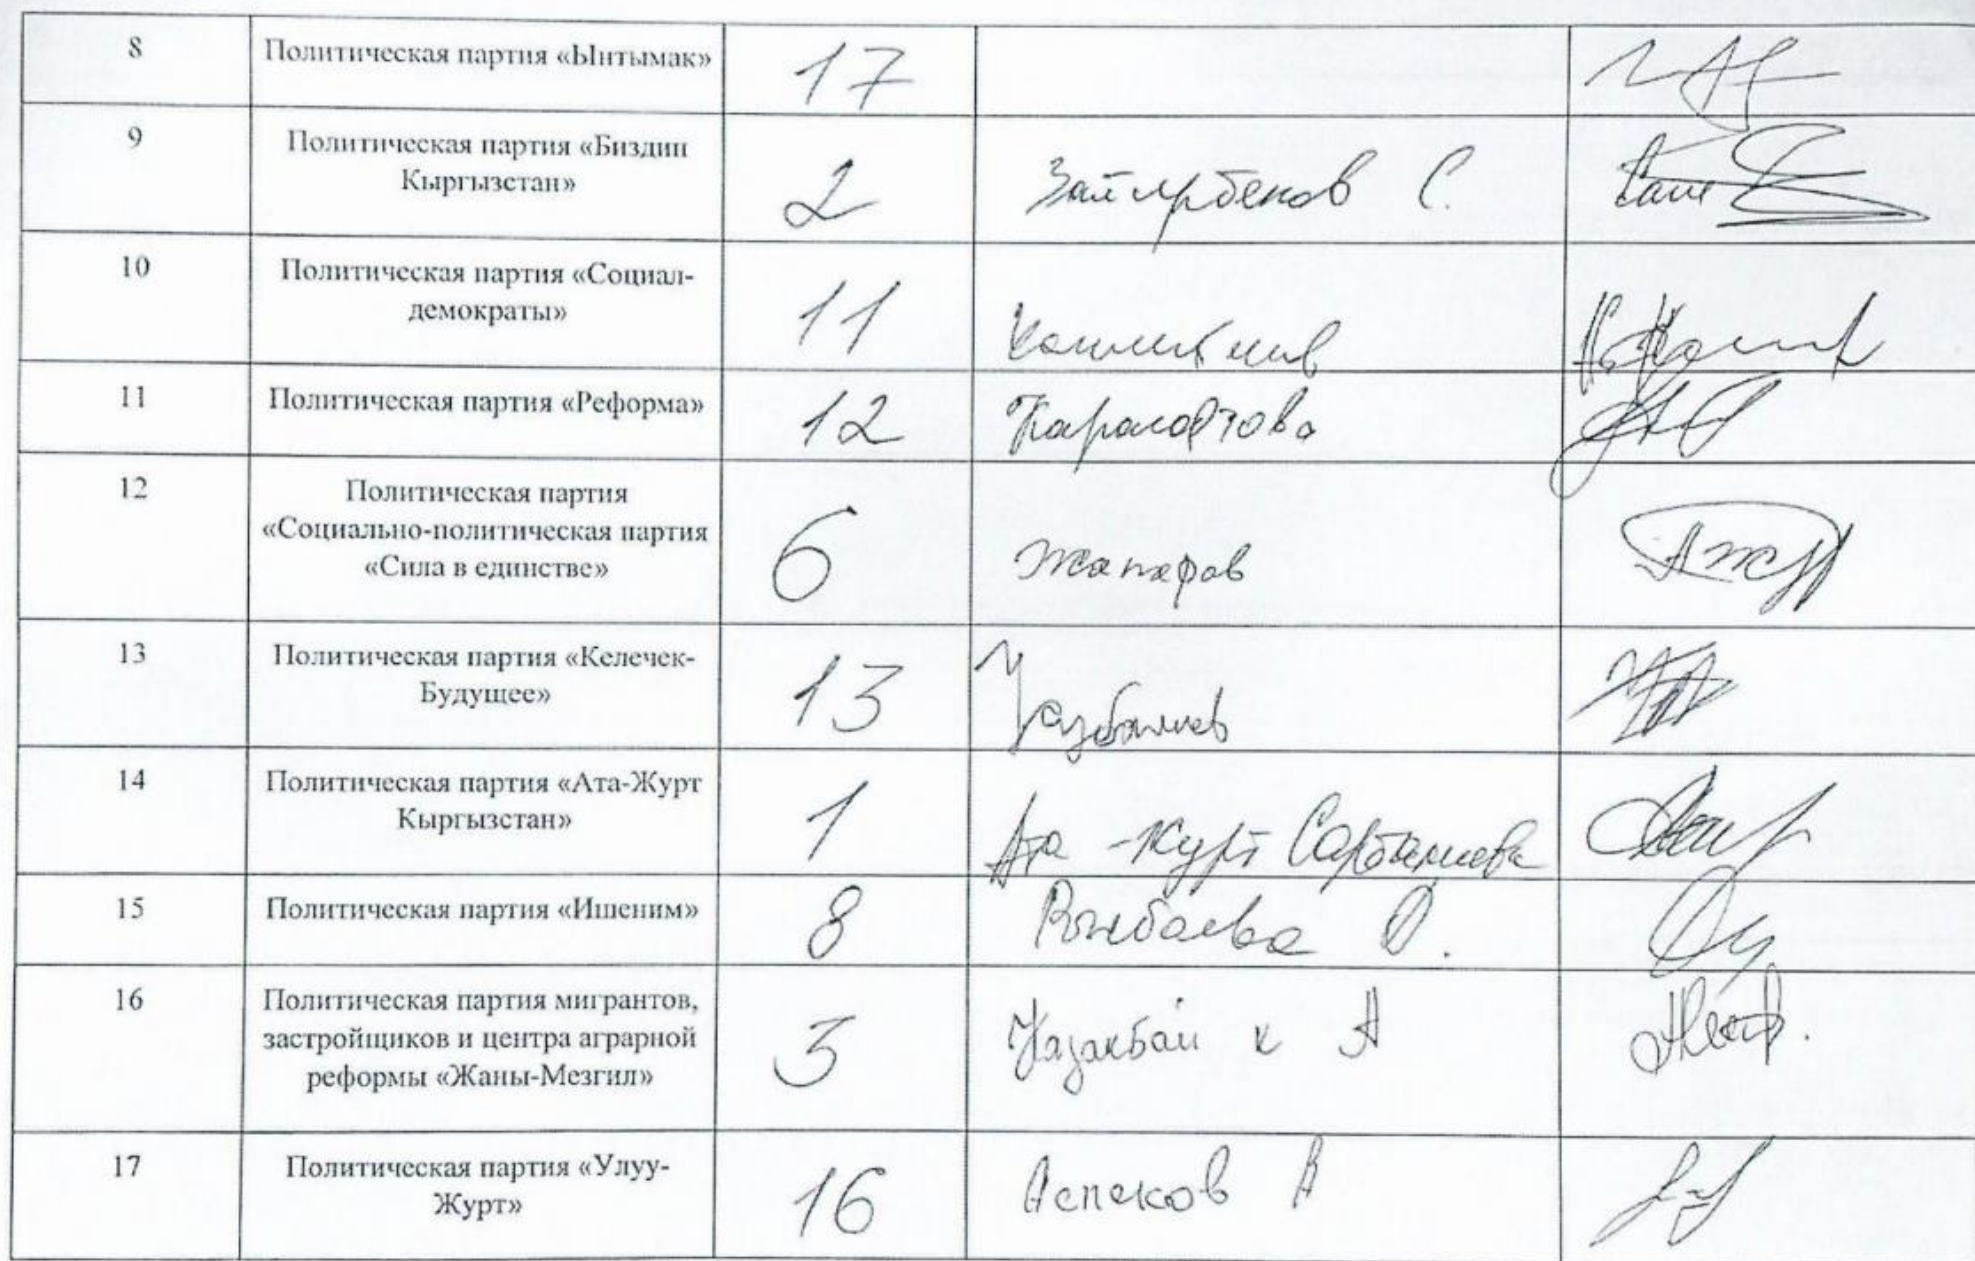 8 Политическая партия «Ынтымак» 17
9 Политическая партия «Биздин
Кыргызстан» 2 С.
10 Политическая партия «Социал-
демократы» 11
11 Политическая партия «Реформа» 12
12 Политическая партия
«Социально-политическая партия
«Сила в единстве» 6 Жапаров
13 Политическая партия «Келечек-
Будущее» 13
14 Политическая партия «Ата-Журт
Кыргызстан» 1 Ата-Журт
15 Политическая партия «Ишеним» 8 О.
16 Политическая партия мигрантов,
застройщиков и центра аграрной
реформы «Жаны-Мезгил» 3 Казакбай к А
17 Политическая партия «Улуу-
Журт» 16 Аспеков А